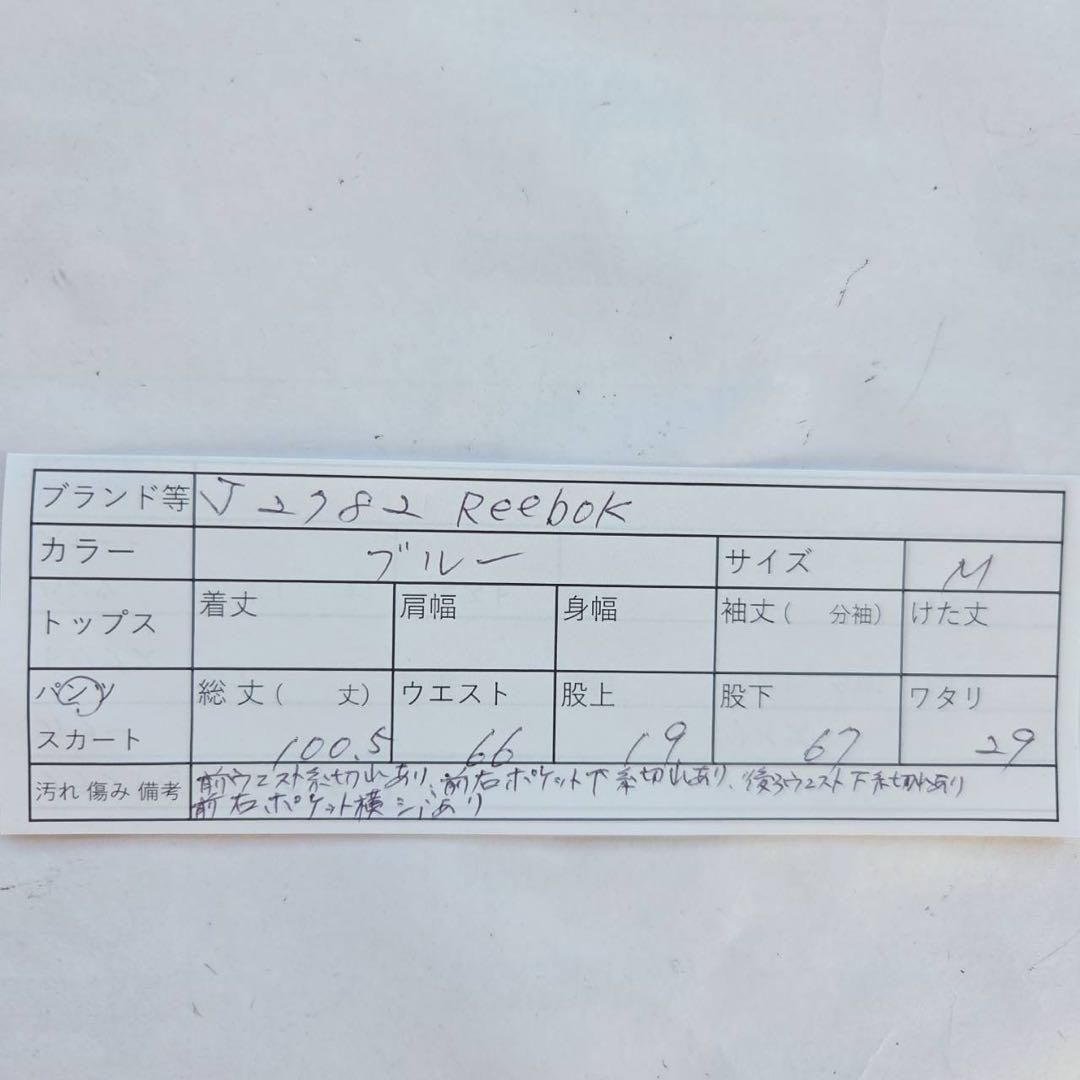 ブランド等 J2782 Reebok
カラー ブルー サイズ M
トップス 着丈 肩幅 身幅 袖丈( 分袖) けた丈
パンツ 総丈( 丈) ウエスト 股上 股下 ワタリ
スカート 100.5 66 19 67 29
汚れ 傷み 備考 前ウエスト糸切れあり、前右ポケット下糸切れあり、後ろウエスト下糸切れあり
前右ポケット横シミあり